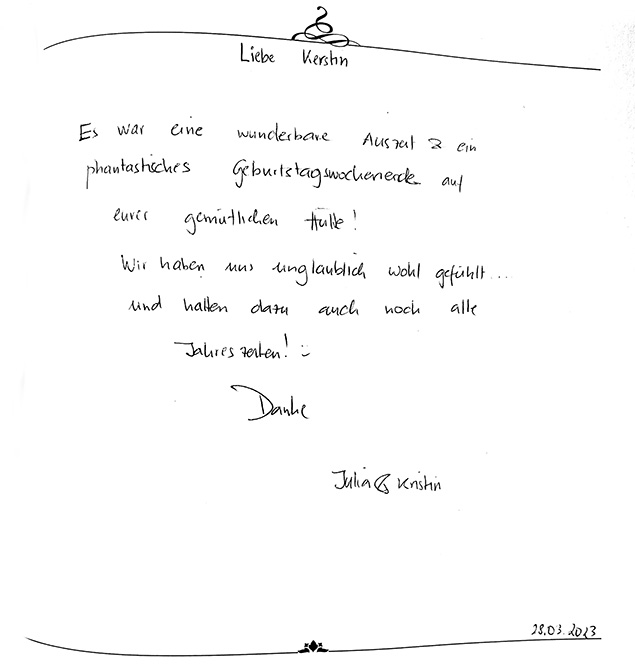 Liebe Kerstin
Es war eine wunderbare Auszeit & ein
phantastisches Geburtstagswochenende auf
eurer gemütlichen Hütte!
Wir haben uns unglaublich wohl gefühlt...
und hatten dazu auch noch alle
Jahreszeiten! :-)
Danke
Julia & Kristin
28.03.2023